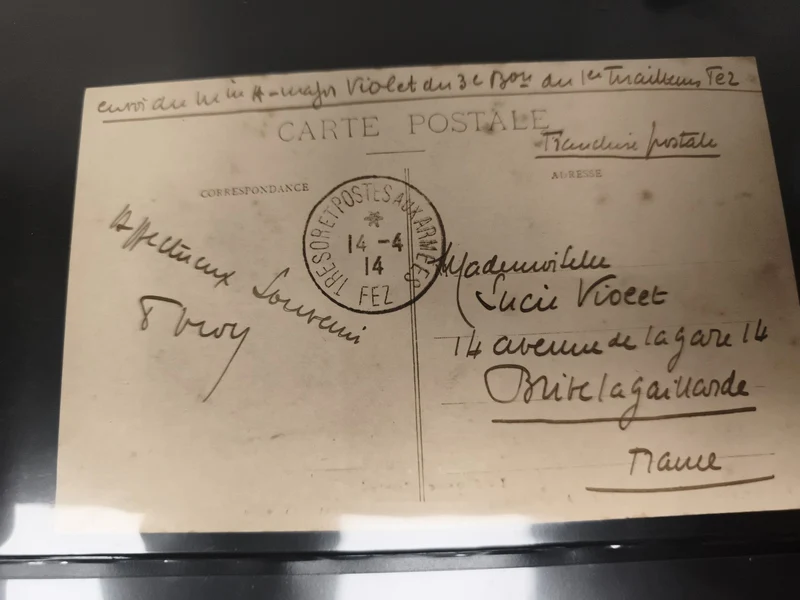 envoi du Min A-major Violet du 3e Bon du 1er Tirailleurs Fez
CARTE POSTALE
Franchise postale
CORRESPONDANCE
ADRESSE
TRESOR ET POSTES AUX ARMEES
14 -4
14
FEZ
Affectueux Souvenir
Mademoiselle
Lucie Violet
14 avenue de la gare 14
Brive la gaillarde
France